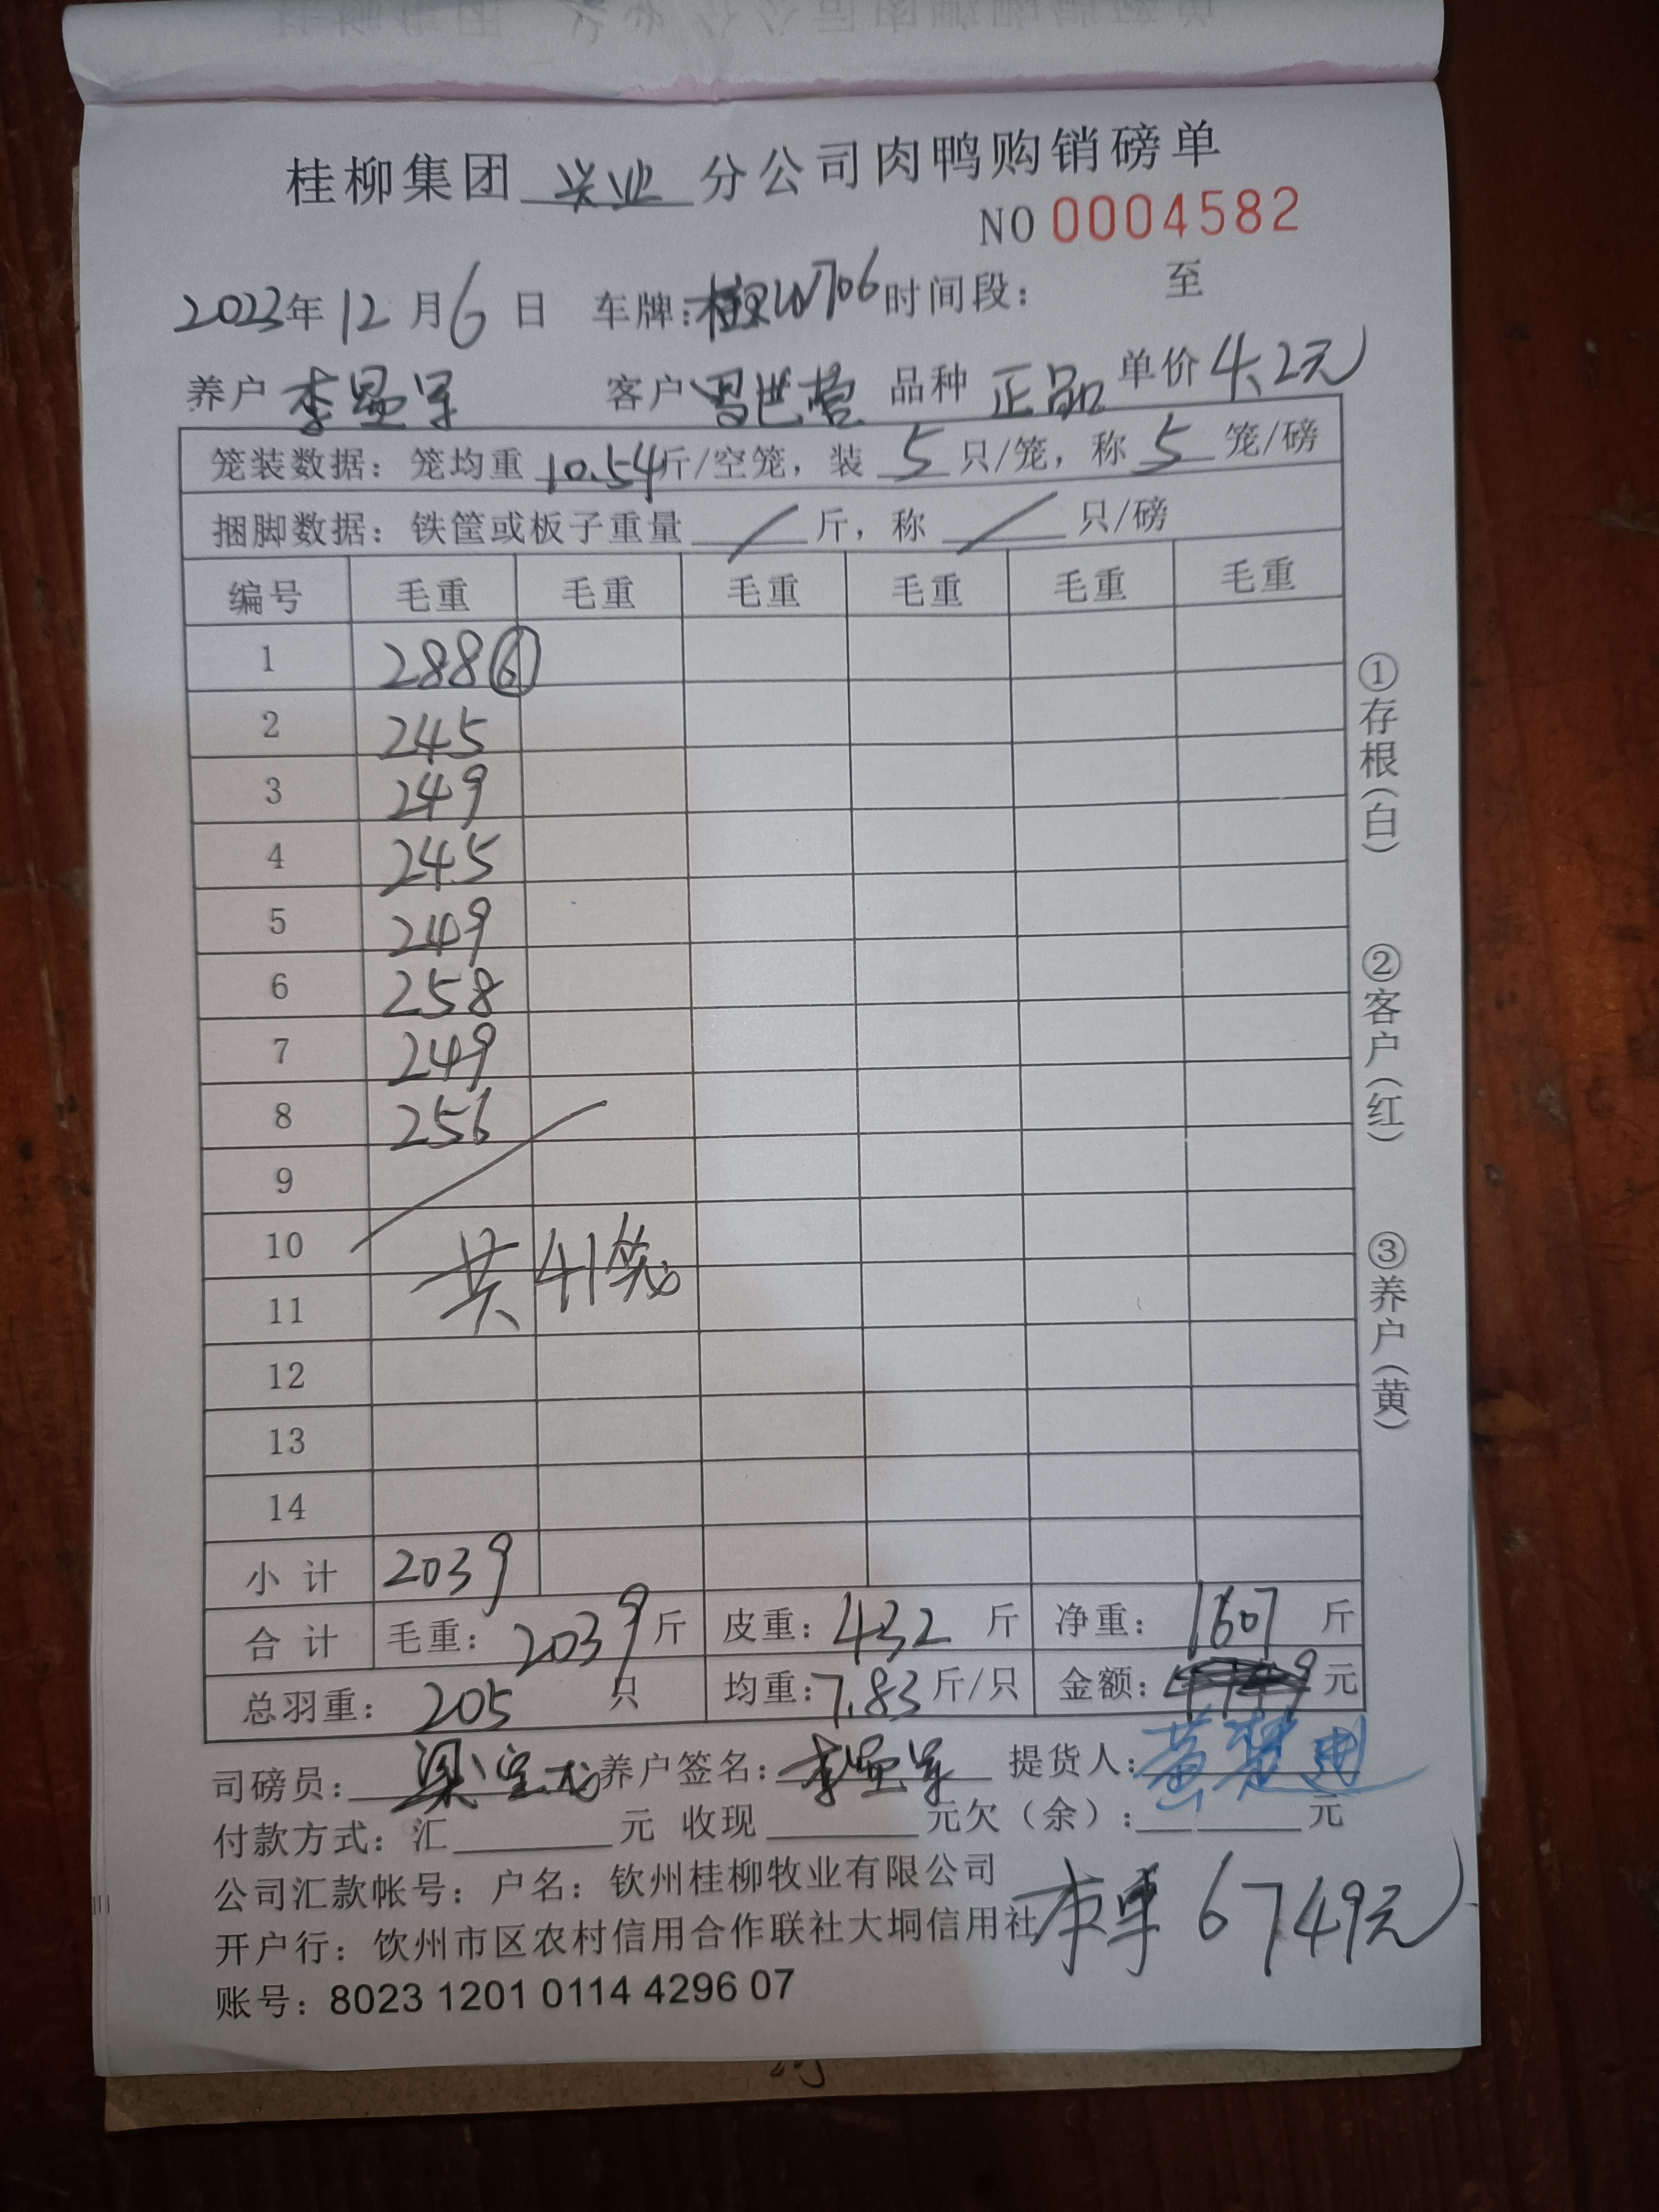 桂柳集团 兴业 分公司肉鸭购销磅单
NO 0004582
2023年 12 月 6 日 车牌: 时间段: 至
养户 李 军 客户 世营 品种 正品 单价 4.2元
笼装数据: 笼均重 10.54 斤/空笼, 装 5 只/笼, 称 5 笼/磅
捆脚数据: 铁筐或板子重量 / 斤, 称 / 只/磅
编号 毛重 毛重 毛重 毛重 毛重 毛重
1 288 ⑥
2 245
3 249
4 245
5 249
6 258
7 249
8 256
9
10
共41笼
11
12
13
14
小计 2039
合计 毛重: 2039 斤 皮重: 432 斤 净重: 1607 斤
总羽重: 205 只 均重: 7.83 斤/只 金额: 元
司磅员: 梁宝龙 养户签名: 李 军 提货人: 黄楚建
付款方式: 汇 元 收现 元欠(余): 元
公司汇款帐号: 户名: 钦州桂柳牧业有限公司
本单 6749元
开户行: 饮州市区农村信用合作联社大垌信用社
账号: 8023 1201 0114 4296 07
①存根(白) ②客户(红) ③养户(黄)